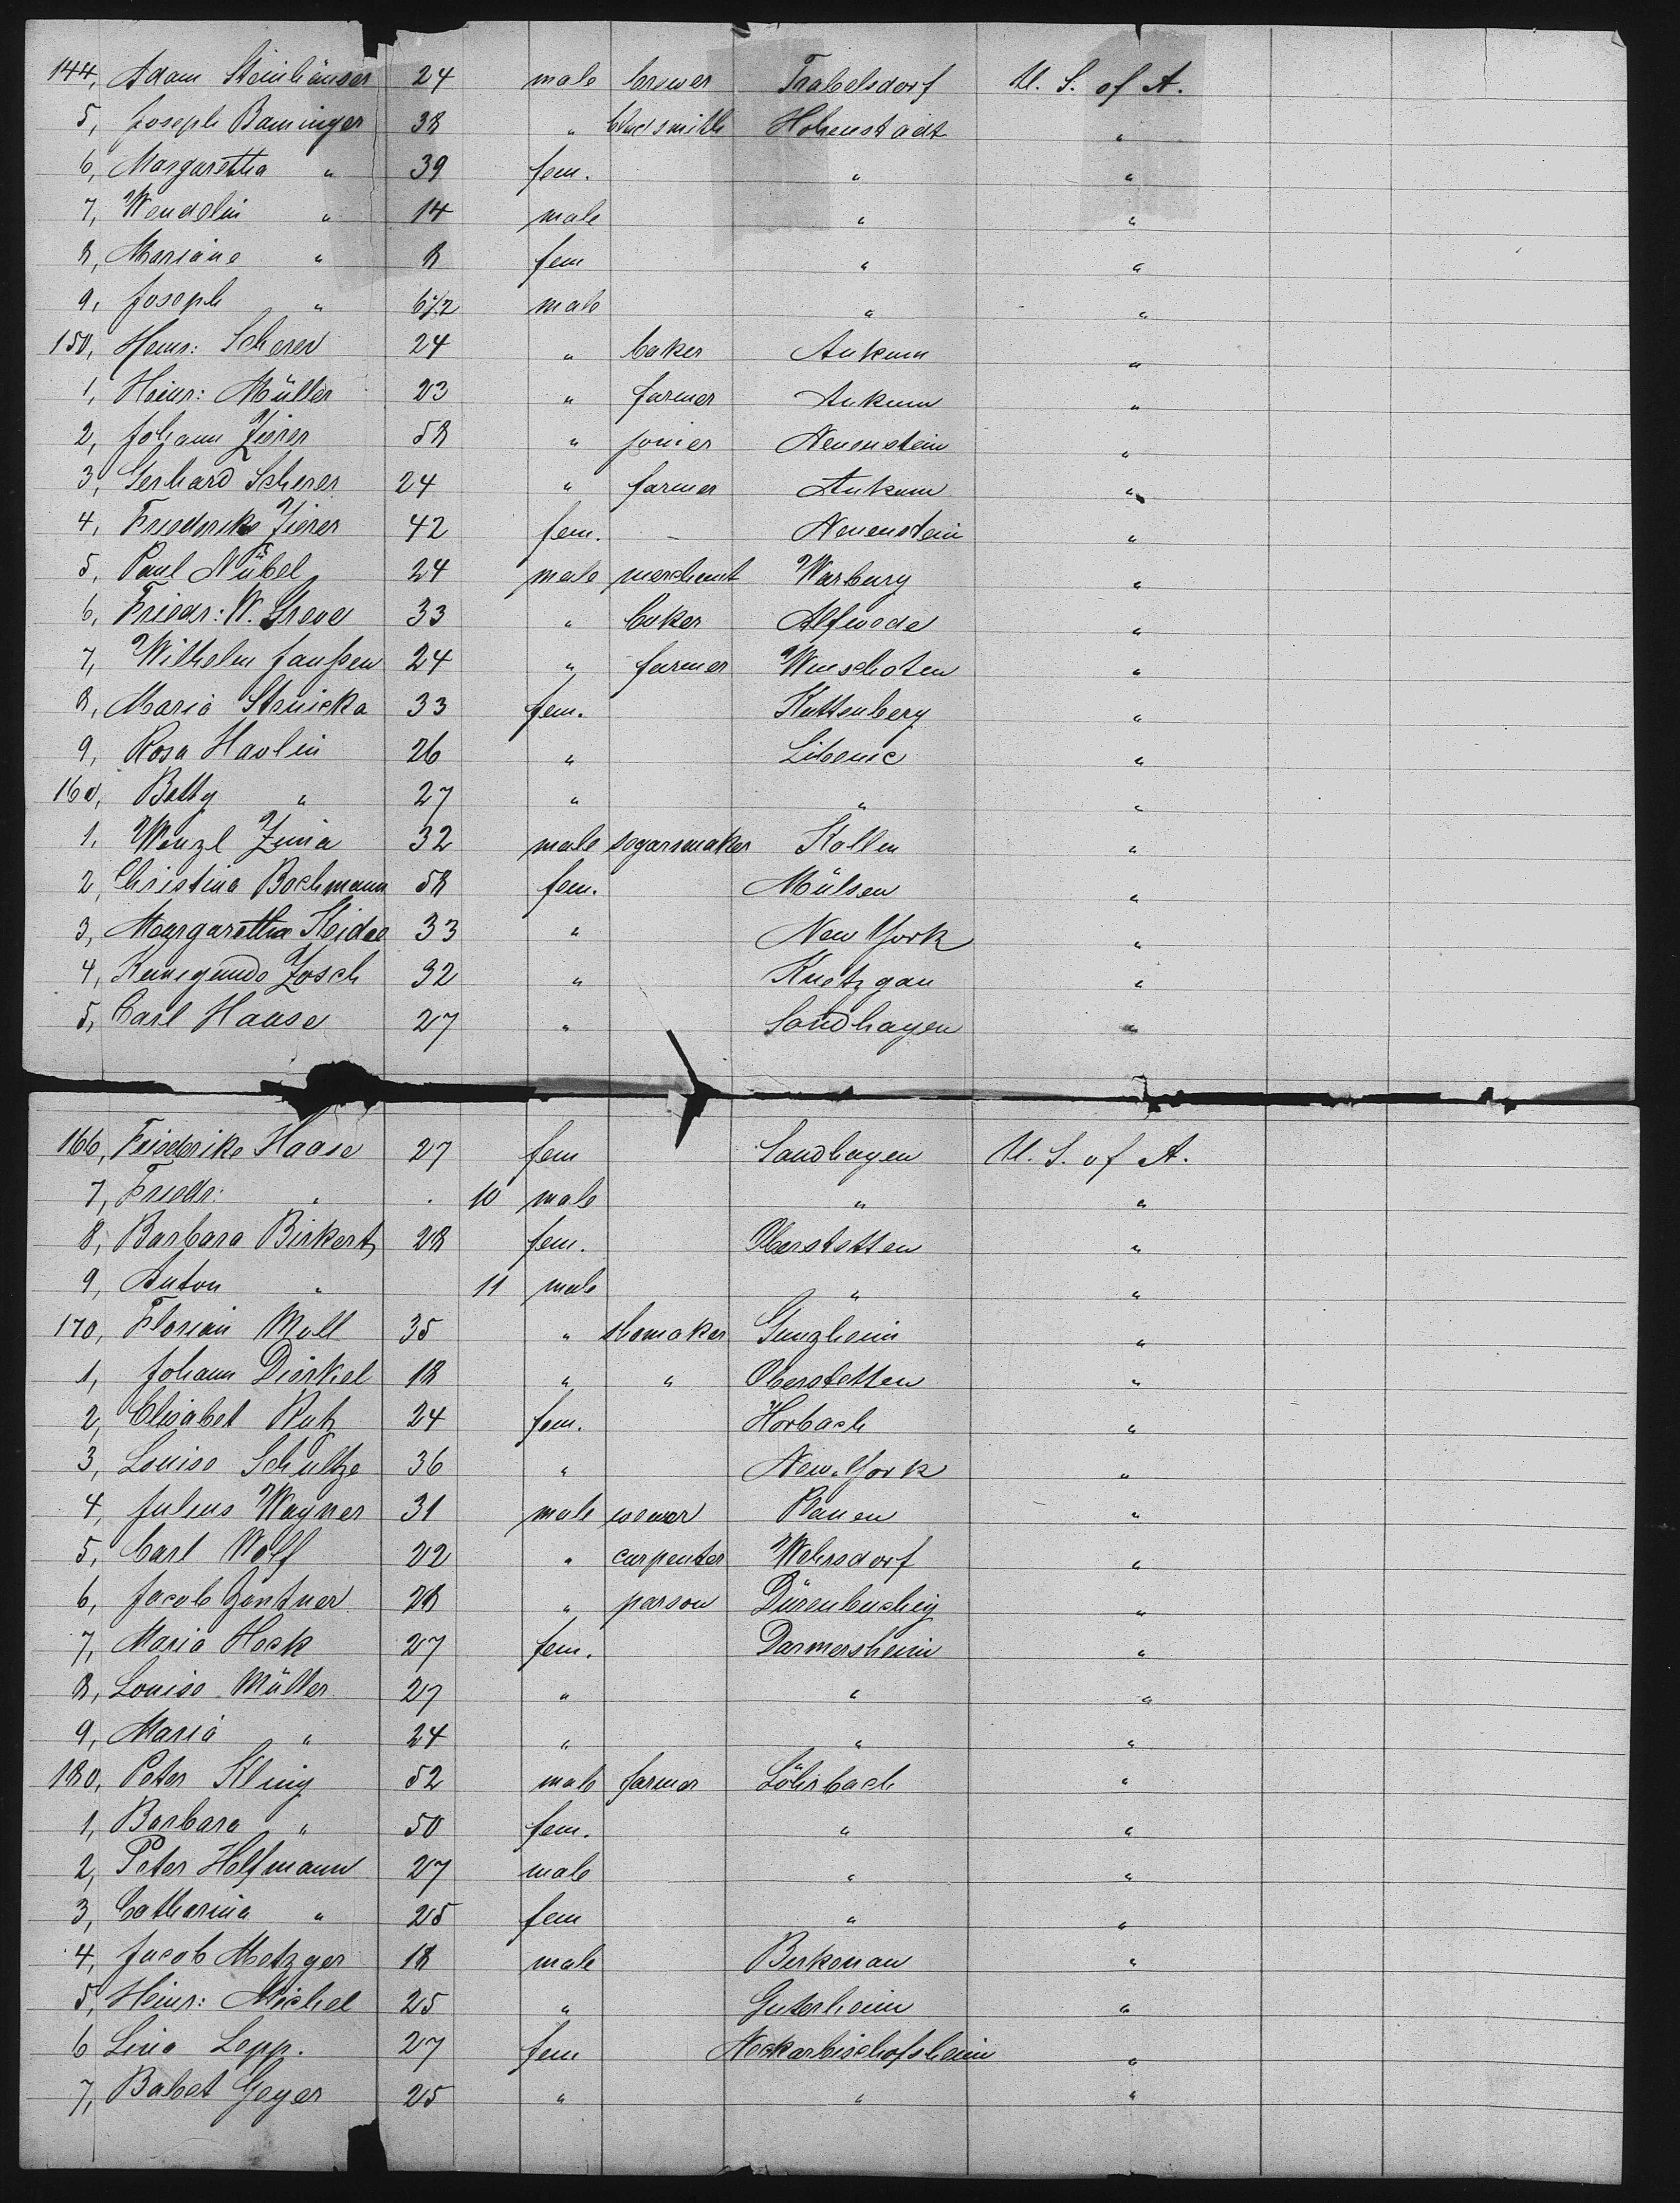 144, Adam Steinhäuser 24 male brewer Trabelsdorf U. S. of A.
5, Joseph Baminger 38 " blacksmith Hohenstadt "
6, Margaretha " 39 fem. " "
7, Wendelin " 14 male " "
8, Mariane " 8 fem " "
9, Joseph " 6 1/2 male " "
150, Heinr: Scherer 24 " baker Ankum "
1, Heinr: Müller 23 " farmer Ankum "
2, Johann Zierer 58 " joiner Neuenstein "
3, Gerhard Scherer 24 " farmer Ankum "
4, Friederike Zierer 42 fem. - Neuenstein "
5, Paul Nübel 24 male merchant Warburg "
6, Friedr: W. Greve 33 " baker Alswede "
7, Wilhelm Janßen 24 " farmer Winschoten "
8, Maria Stanicka 33 fem. Kuttenberg "
9, Rosa Havlin 26 " Libenic "
160, Betty " 27 " " "
1, Wenzl Zima 32 male segarsmaker Kollin "
2, Christina Bachmann 58 fem. Mülsen "
3, Margaretha Heidee 33 " New York "
4, Kunigunde Zosch 32 " Knetzgau "
5, Carl Haase 27 " Sandhagen "
166, Friederike Haase 27 fem Sandhagen U. S. of A.
7, Friedr: " . 10 male " "
8, Barbara Birkert 28 fem. Oberstetten "
9, Anton " 11 male " "
170, Florian Moll 35 " shomaker Gunzheim "
1, Johann Dierkel 18 " " Oberstetten "
2, Elisabet Rutz 24 fem. Horbach "
3, Louise Schultze 36 " New-York "
4, Julius Wagner 31 male weaver Plauen "
5, Carl Wolf 22 " carpenter Wehrsdorf "
6, Jacob Gantner 28 " parson Dürenbuchig "
7, Maria Hock 27 fem. Darmersheim "
8, Louise Müller 27 " " "
9, Maria " 24 " " "
180, Peter Kling 52 male farmer Löhrbach "
1, Barbara " 50 fem. " "
2, Peter Helfmann 27 male " "
3, Catharina " 25 fem " "
4, Jacob Metzger 18 male Birkenau "
5, Heinr: Michel 25 " Guterheim "
6 Lina Lepp. 27 fem Neckarbischofsheim "
7, Babet Geyer 25 " " "